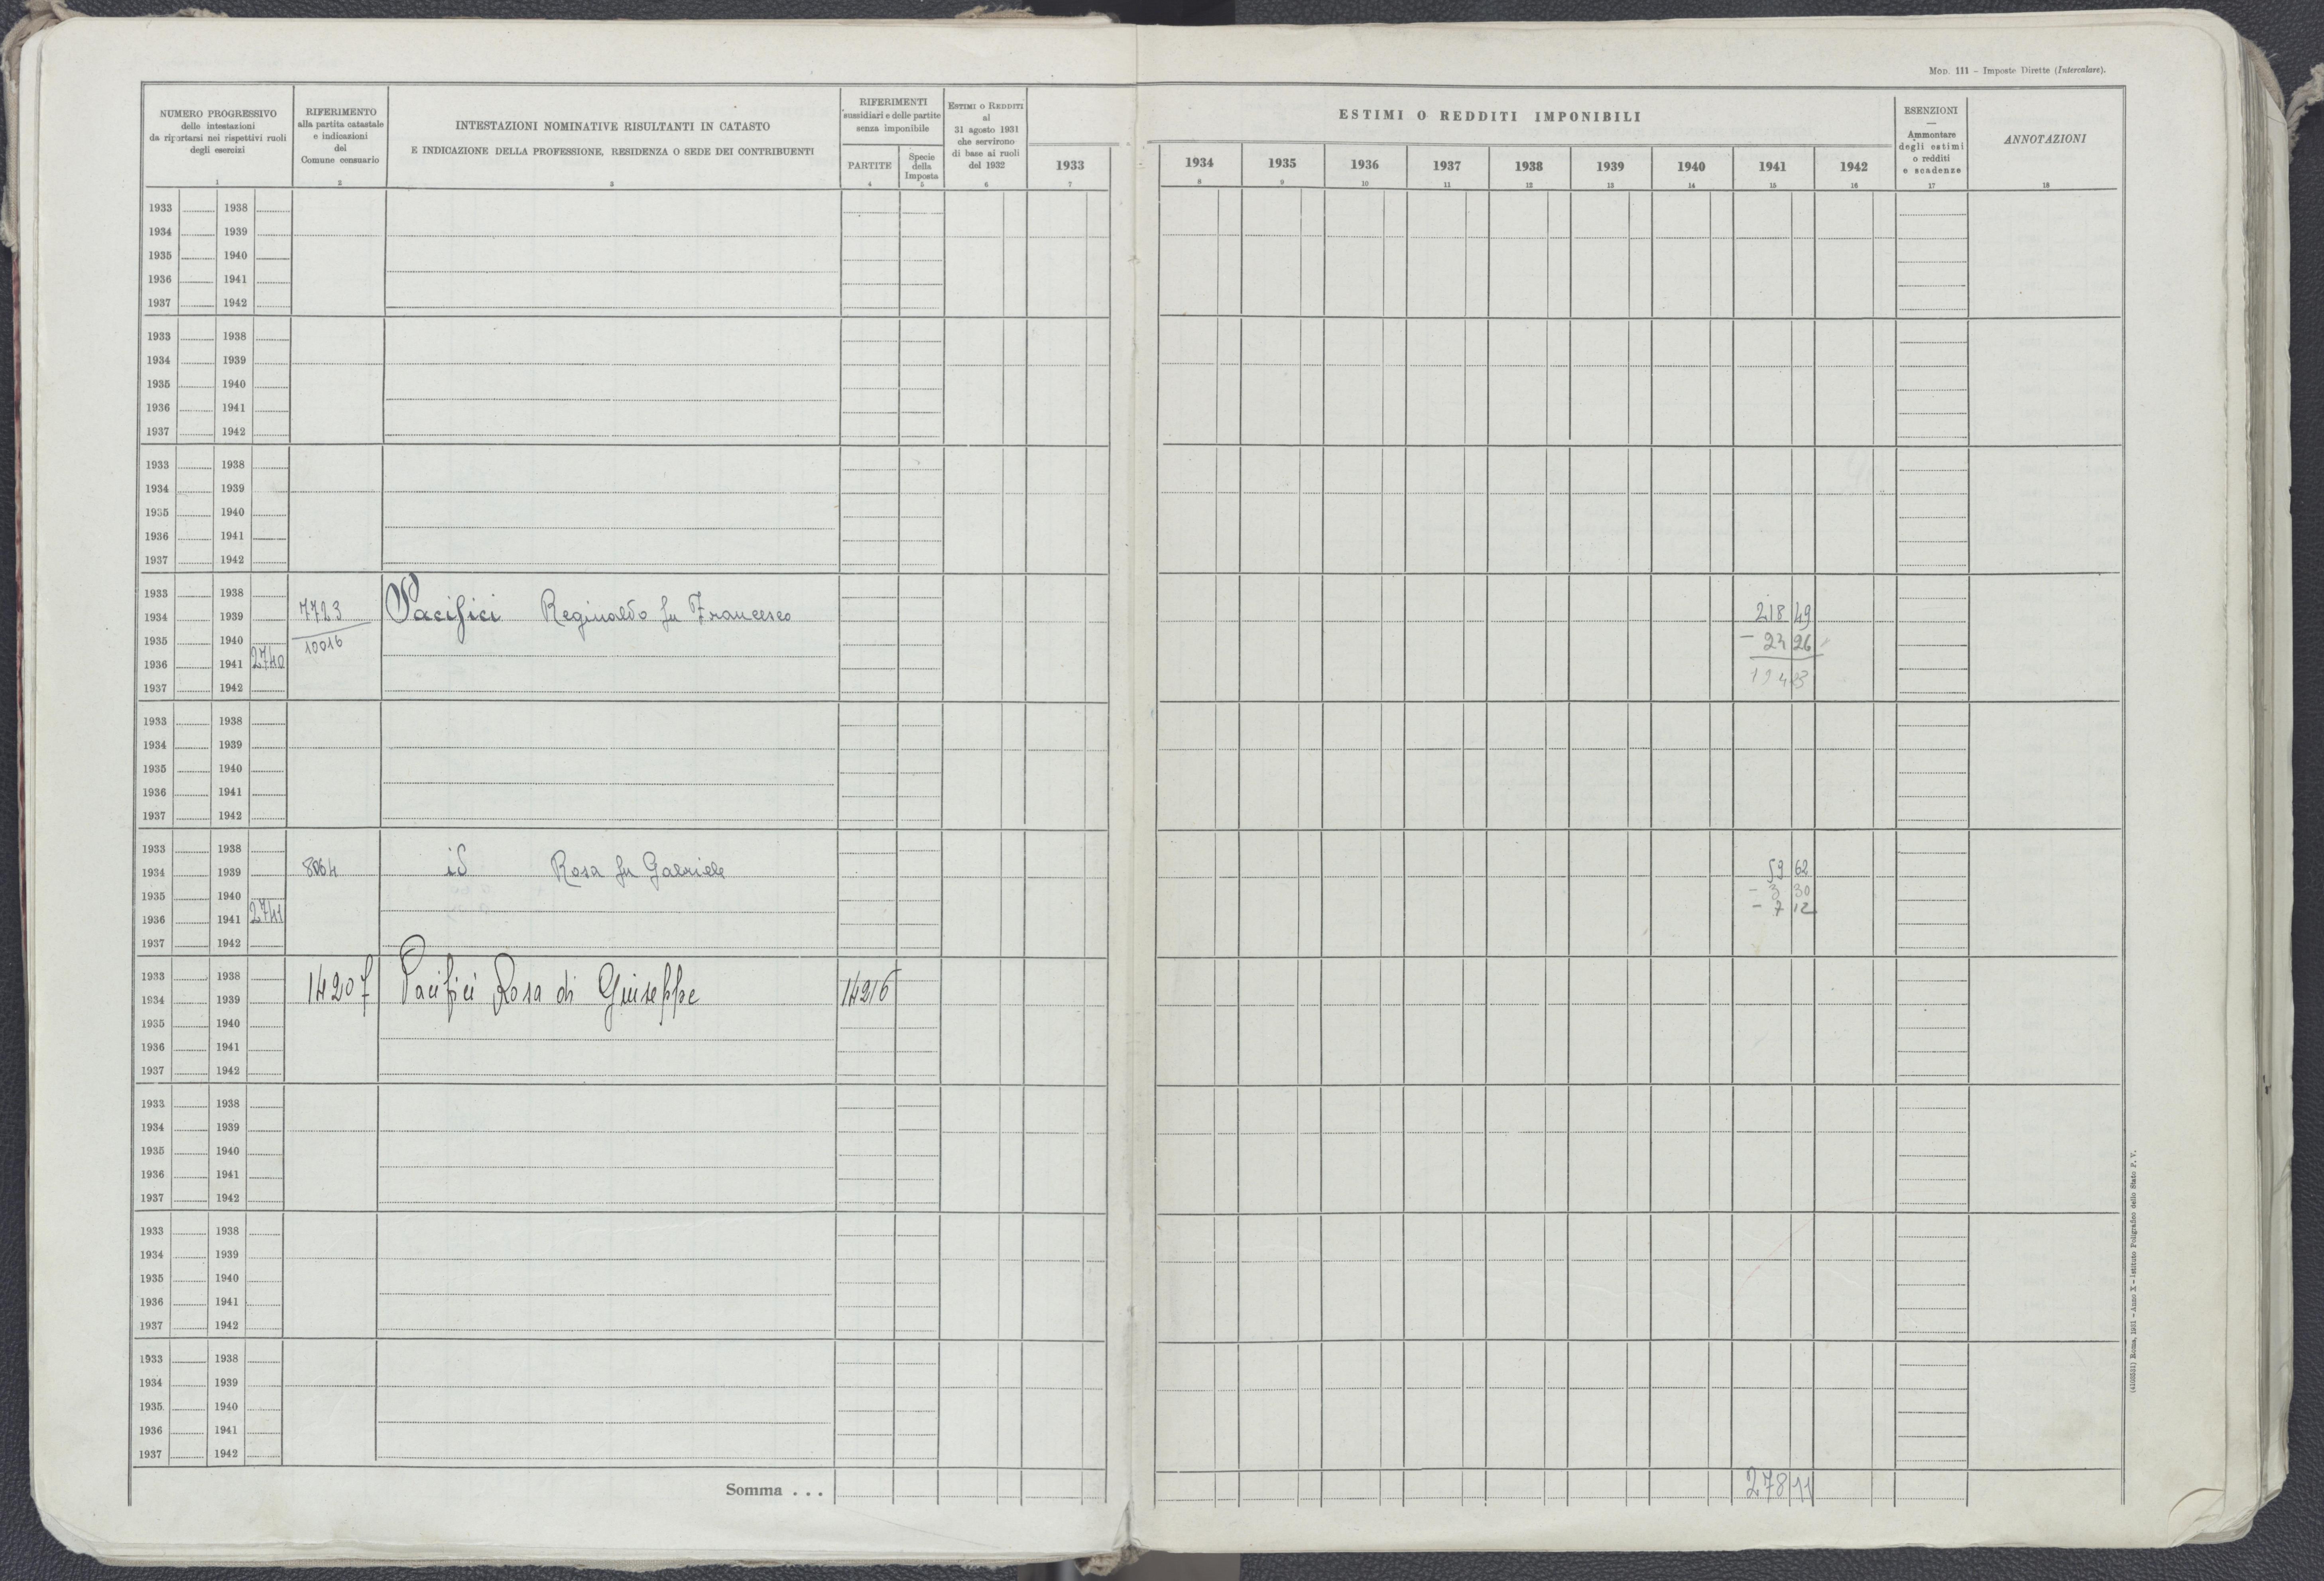 MOD. 111 - Imposte Dirette (Intercalare).
NUMERO PROGRESSIVO
delle intestazioni
da riportarsi nei rispettivi ruoli
degli esercizi
1
RIFERIMENTO
alla partita catastale
e indicazioni
del
Comune censuario
2
INTESTAZIONI NOMINATIVE RISULTANTI IN CATASTO
E INDICAZIONE DELLA PROFESSIONE, RESIDENZA O SEDE DEI CONTRIBUENTI
3
RIFERIMENTI
sussidiari e delle partite
senza imponibile
PARTITE
4
Specie
della
Imposta
5
ESTIMI O REDDITI
al
31 agosto 1931
che servirono
di base ai ruoli
del 1932
6
1933
7
ESTIMI O REDDITI IMPONIBILI
1934 1935 1936 1937 1938 1939 1940 1941 1942
8 9 10 11 12 13 14 15 16
ESENZIONI
—
Ammontare
degli estimi
o redditi
e scadenze
17
ANNOTAZIONI
18
1933 1938
1934 1939
1935 1940
1936 1941
1937 1942
1933 1938
1934 1939
1935 1940
1936 1941
1937 1942
1933 1938
1934 1939
1935 1940
1936 1941
1937 1942
1933 1938
1934 1939 7723 Pacifici Reginaldo fu Francesco 218 49
1935 1940 10016 - 24 26
1936 1941 2740
1937 1942
1933 1938
1934 1939
1935 1940
1936 1941
1937 1942
1933 1938
1934 1939 8064 id Rosa fu Gabriele 59 62
1935 1940 - 3 30
1936 1941 2741 - 7 12
1937 1942
1933 1938
1934 1939 14207 Pacifici Rosa di Giuseppe 14216
1935 1940
1936 1941
1937 1942
1933 1938
1934 1939
1935 1940
1936 1941
1937 1942
1933 1938
1934 1939
1935 1940
1936 1941
1937 1942
1933 1938
1934 1939
1935 1940
1936 1941
1937 1942
Somma . . . 278 11
Roma, 1931 - Anno X - Istituto Poligrafico dello Stato P. V.